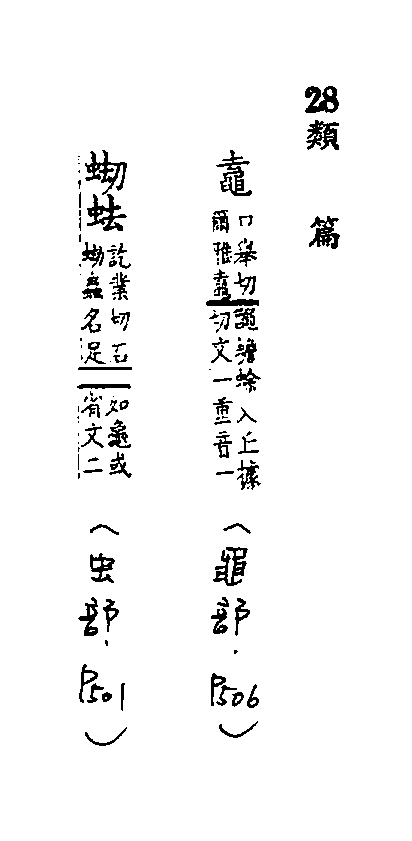 28類 篇
口舉切
爾雅
蟾蜍入丘據
切文一重音一
〈黽部．P506〉
訖業切石
蟲名足
如龜或
省文二
〈虫部．P501〉